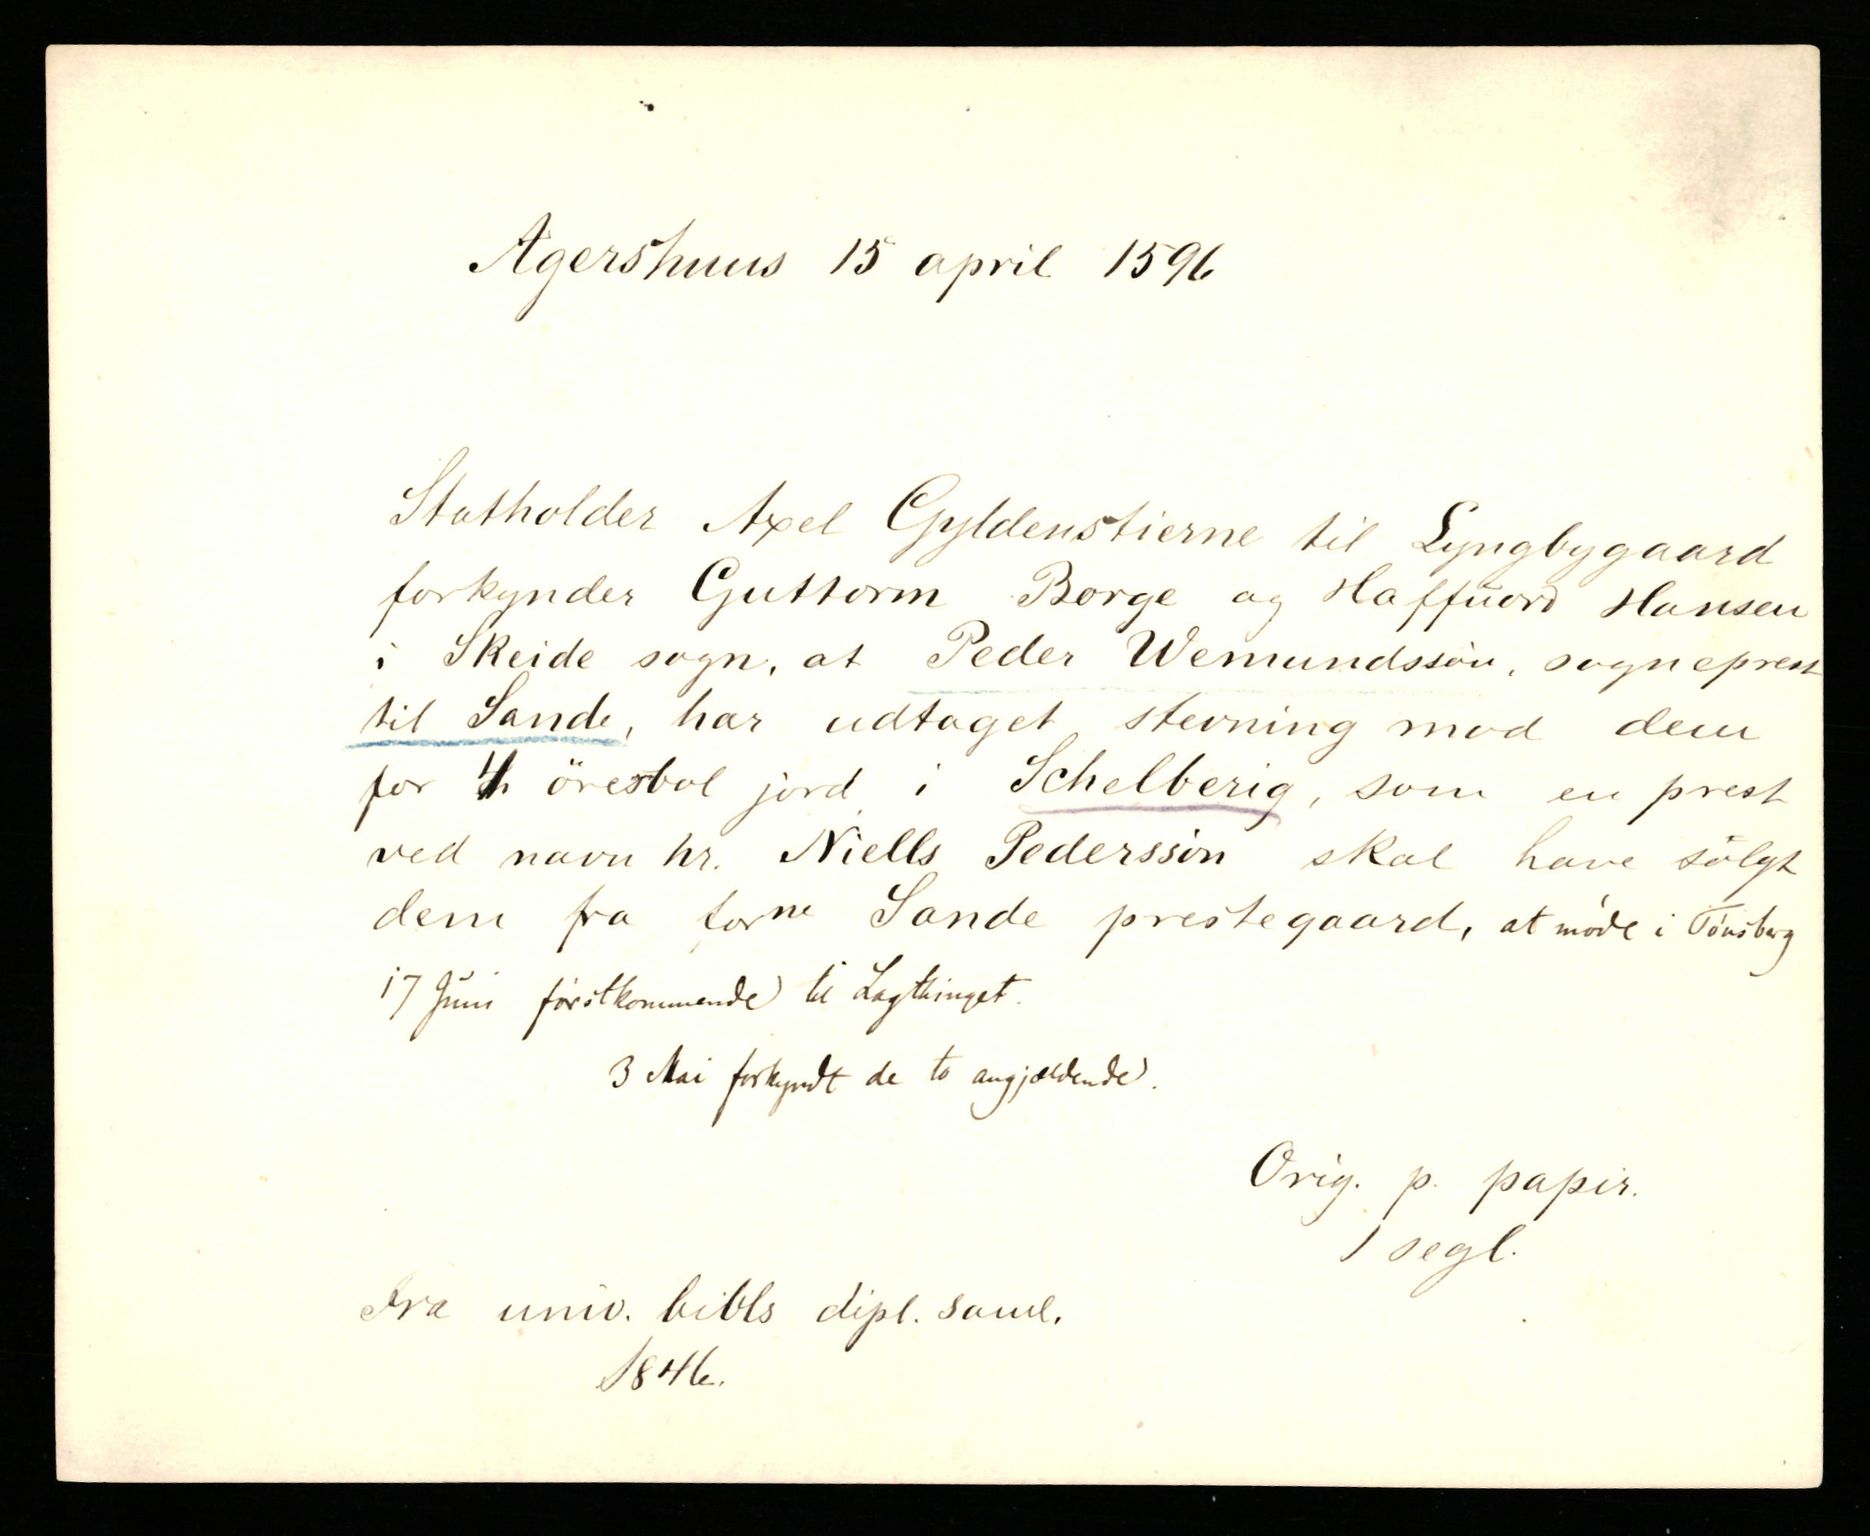 Agershuus 15 april 1596
Statholder Axel Gyldenstierne til Lyngbygaard
forkynder Guttorm Borge og Haffuord Hansen
i Skeide sogn, at Peder Wemundssön, sogneprest
til Sande, har udtaget stevning mod dem
for 4 öresbol jord i Schelberig, som en prest
ved navn hr. Niells Pederssön skal have sölgt
dem fra forne Sande prestegaard, at møde i Tönsberg
17 Juni förstkommende til Lagthinget.
3 Mai forkyndt de to angjældende.
Orig. p. papir.
1 segl.
Fra univ. bibls dipl. saml.
1846.